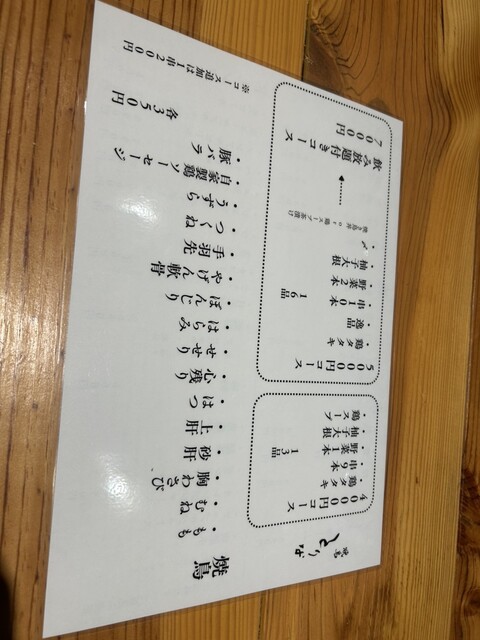 焼鳥 とりな
4000円コース
・鶏タタキ
・串9本
・野菜1本
13品
・柚子大根
・鶏スープ
5000円コース
・鶏タタキ
・逸品
・串10本
16品
・野菜2本
・柚子大根
・〆
焼き鳥丼or鶏スープ茶漬け
飲み放題付きコース
7000円
※コース追加は1串200円
焼鳥
・もも
・むね
・胸わさび
・砂肝
・上肝
・はつ
・心残り
・せせり
・はらみ
・ぼんじり
・やげん軟骨
・手羽先
・つくね
・うずら
・自家製鶏ソーセージ
・豚バラ
各350円